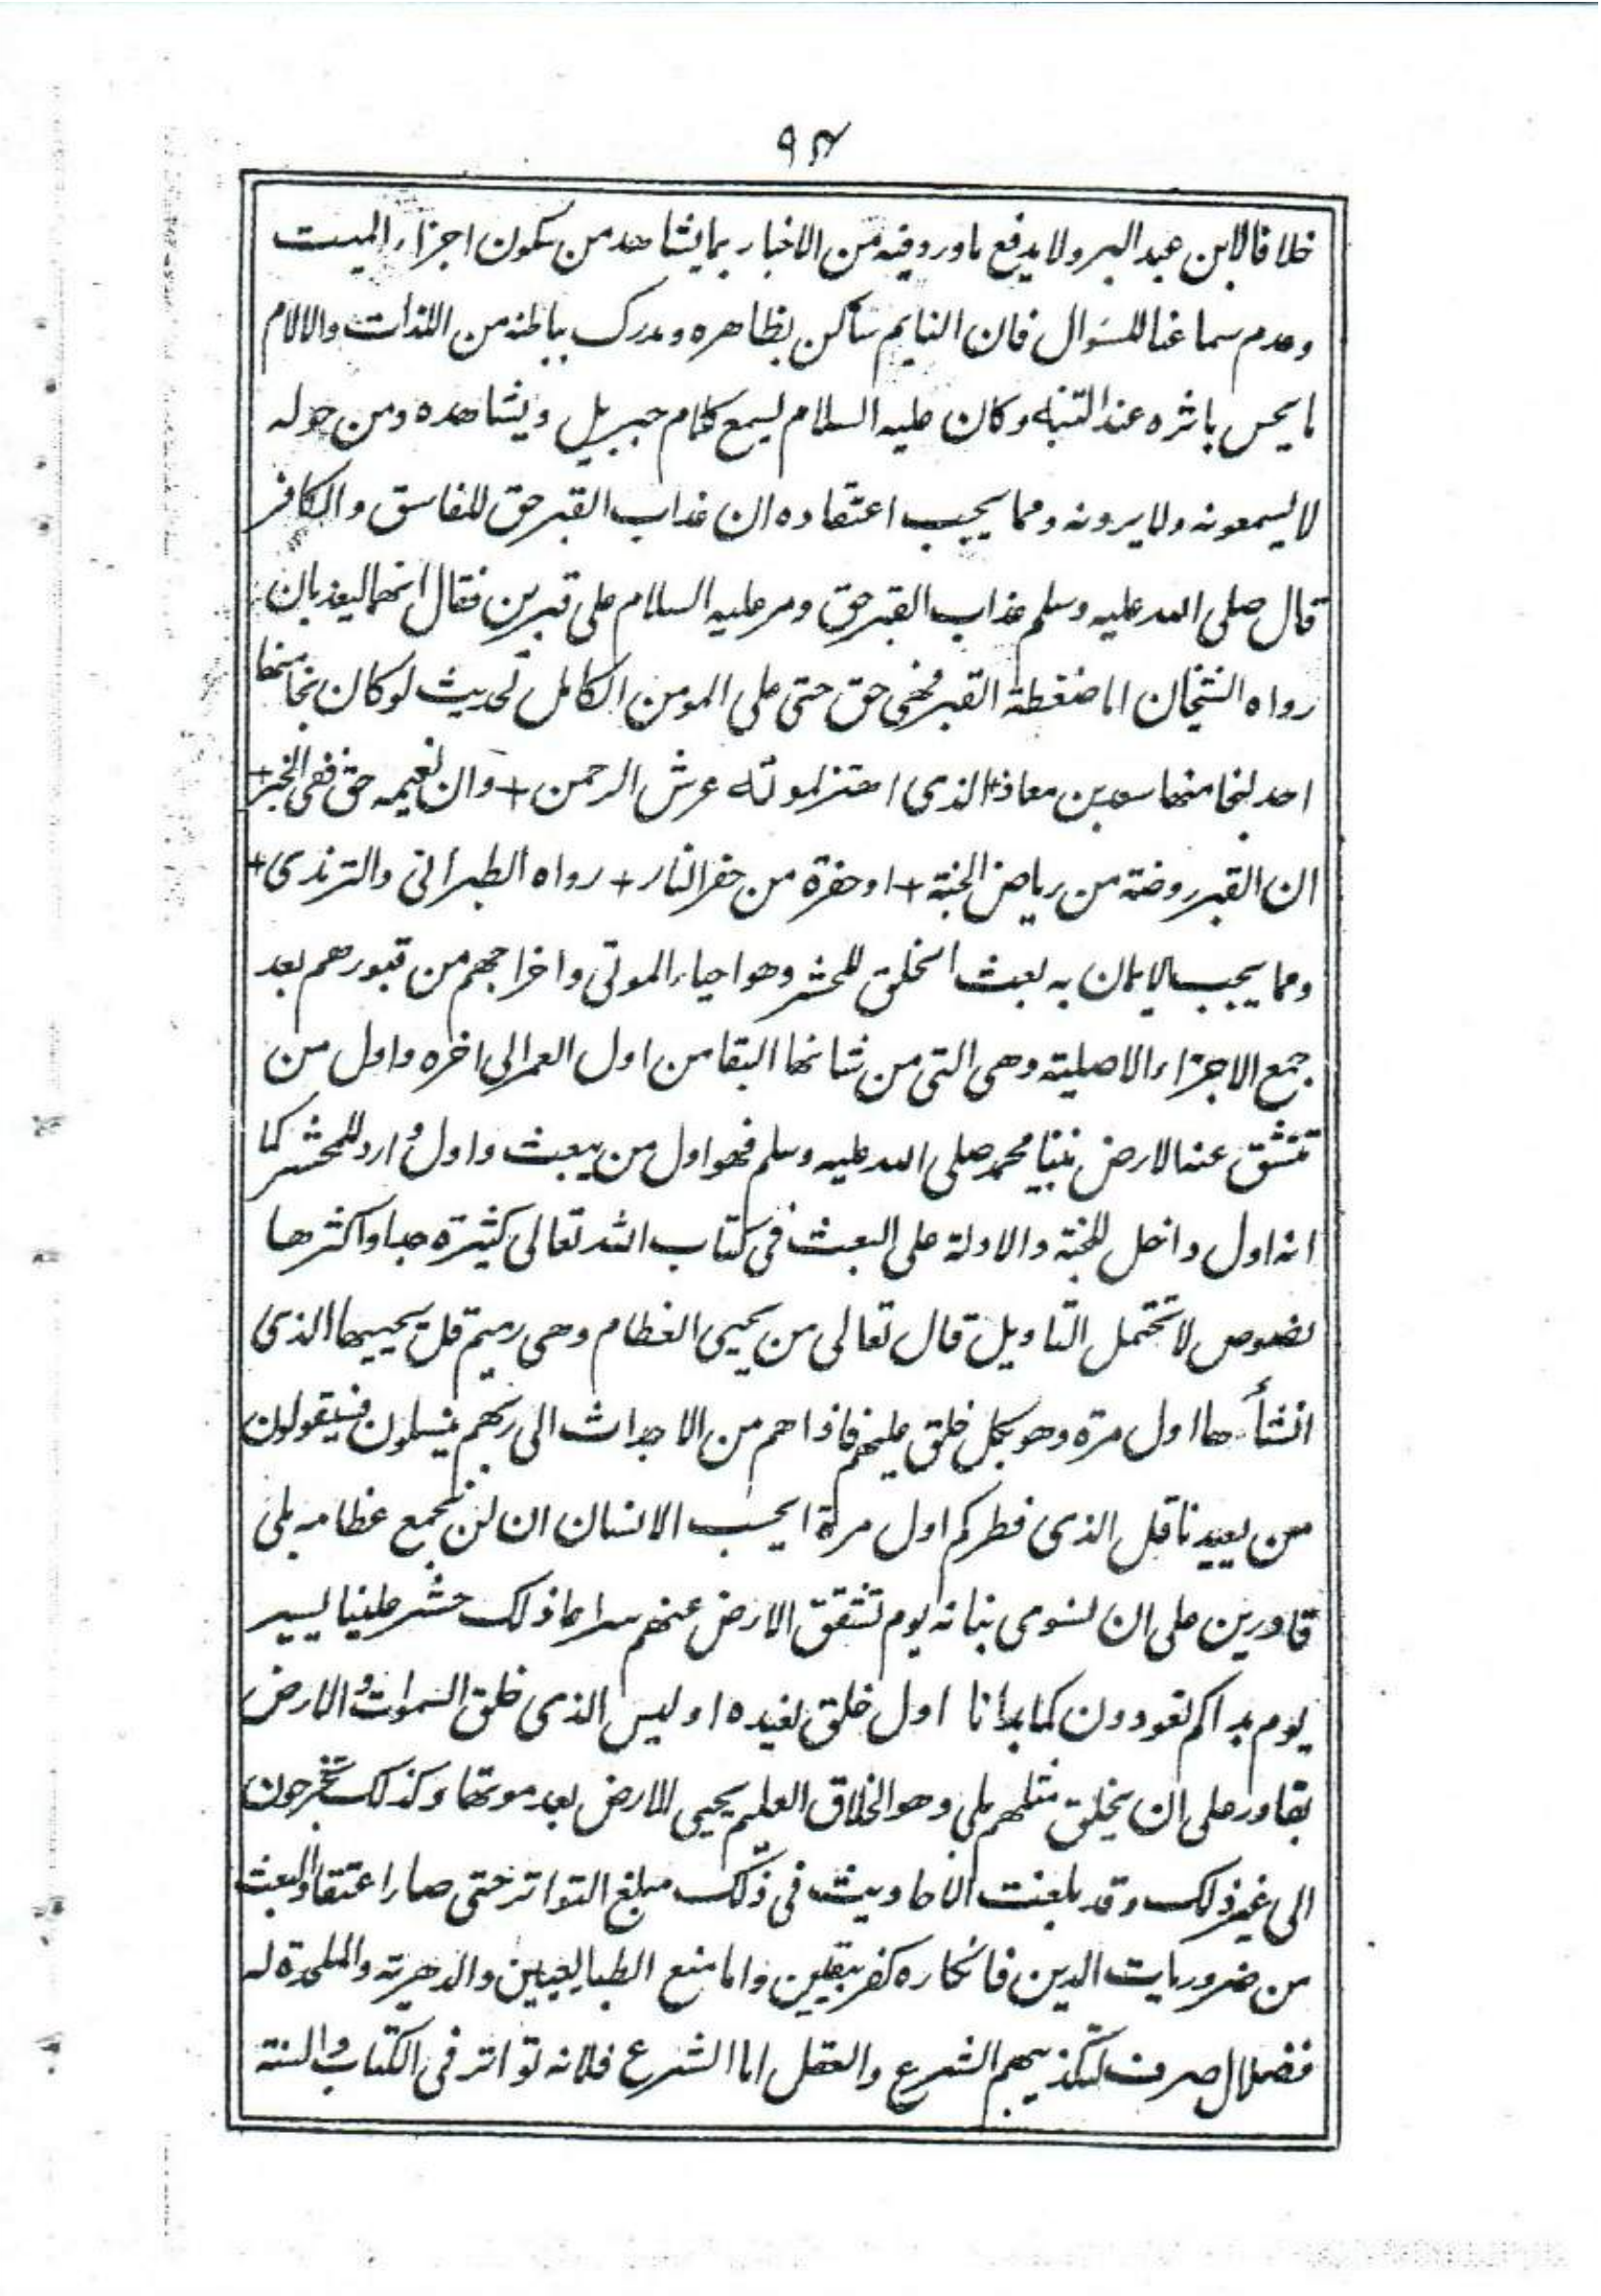 ٩٤
خلافا لابن عبد البر ولا يدفع ما ورد فيه من الاخبار بما يشاهد من سكون اجزاء الميت
وعدم سماعنا للسؤال فان النايم ساكن بظاهره ومدرك بباطنه من اللذات والالام
ما يحس باثره عند التنبه وكان عليه السلام يسمع كلام جبريل ويشاهده ومن حوله
لا يسمعونه ولا يرونه ومما يجب اعتقاده ان عذاب القبر حق للفاسق والكافر
قال صلى الله عليه وسلم عذاب القبر حق ومر عليه السلام على قبرين فقال انهما ليعذبان
رواه الشيخان اما ضغطة القبر فهى حق حتى على المومن الكامل لحديث لو كان نجا منها
احد لنجا منها سعد بن معاذ+ الذى اهتز لموته عرش الرحمن + وان نعيمه حق ففى الخبر+
ان القبر روضة من رياض الجنة + او حفرة من حفر النار + رواه الطبرانى والترمذى+
ومما يجب الايمان به بعث الخلق للحشر وهو احياء الموتى واخراجهم من قبورهم بعد
جمع الاجزاء الاصلية وهى التى من شانها البقا من اول العمر الى اخره واول من
تنشق عنه الارض نبينا محمد صلى الله عليه وسلم فهو اول من يبعث واول وارد للمحشر كما
انه اول داخل للجنة والادلة على البعث فى كتاب الله تعالى كثيرة جدا واكثرها
نصوص لا تحتمل التاويل قال تعالى من يحيى العظام وهى رميم قل يحييها الذى
انشأها اول مرة وهو بكل خلق عليم فاذا هم من الاجداث الى ربهم ينسلون فسيقولون
من يعيدنا قل الذى فطركم اول مرة ايحسب الانسان ان لن نجمع عظامه بلى
قادرين على ان نسوى بنانه يوم تشقق الارض عنهم سراعا ذلك حشر علينا يسير
يوم بداكم تعودون كما بدانا اول خلق نعيده اوليس الذى خلق السموات والارض
بقادر على ان يخلق مثلهم بلى وهو الخلاق العليم يحيى الارض بعد موتها وكذلك تخرجون
الى غير ذلك وقد بلغت الاحاديث فى ذلك مبلغ التواتر حتى صار اعتقاد البعث
من ضروريات الدين فانكاره كفر بيقين واما منع الطبايعيين والدهرية والملحدة له
فضلال صرف لتكذيبهم الشرع والعقل اما الشرع فلانه تواتر فى الكتاب والسنة